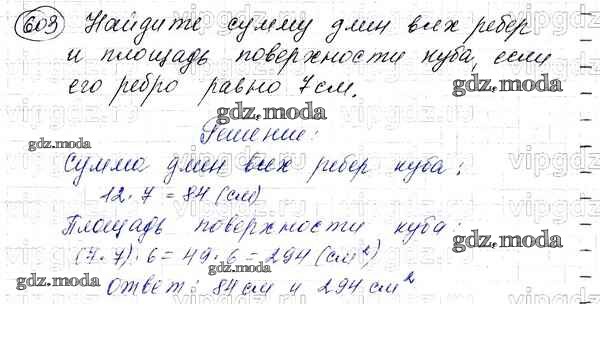 603 Найдите сумму длин всех ребер
и площадь поверхности куба, если
его ребро равно 7 см.
gdz.moda
gdz.moda
gdz.moda
Решение:
gdz.moda
Сумма длин всех ребер куба:
12 · 7 = 84 (см)
Площадь поверхности куба:
(7 · 7) · 6 = 49 · 6 = 294 (см²)
gdz.moda
gdz.moda
gdz.moda
Ответ: 84 см и 294 см²